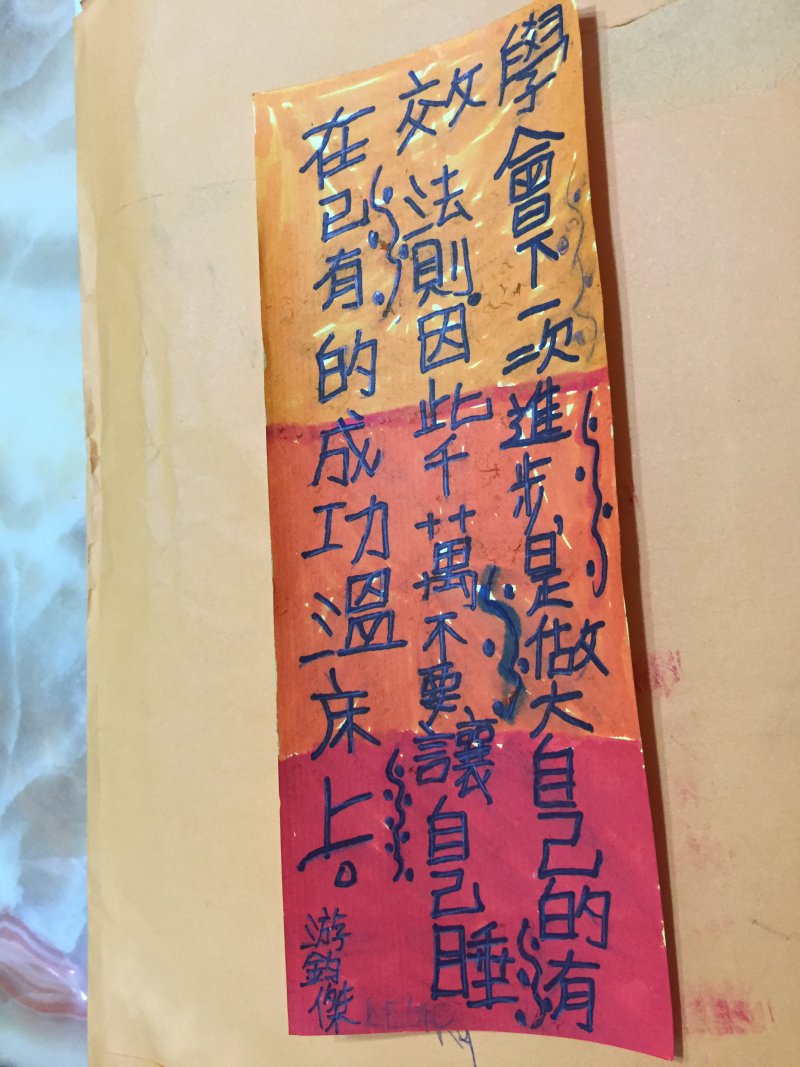 學會下一次進步,是做大自己的有
效法則因此千萬不要讓自己睡
在已有的成功溫床上。
游鈞傑